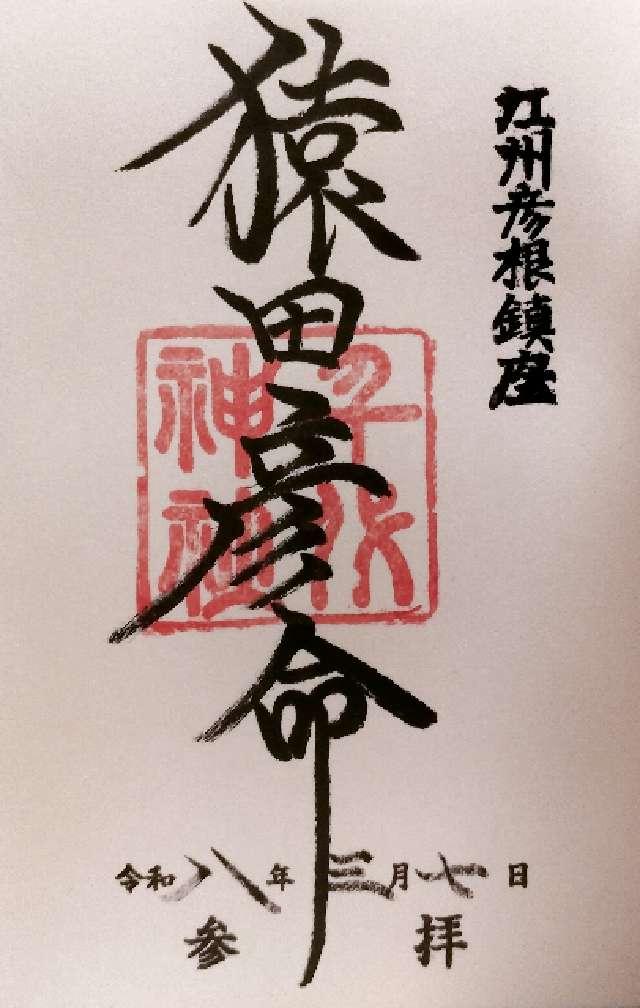 江州彦根鎮座
猿田彦命
千代
神社
令和八年三月七日
参拝